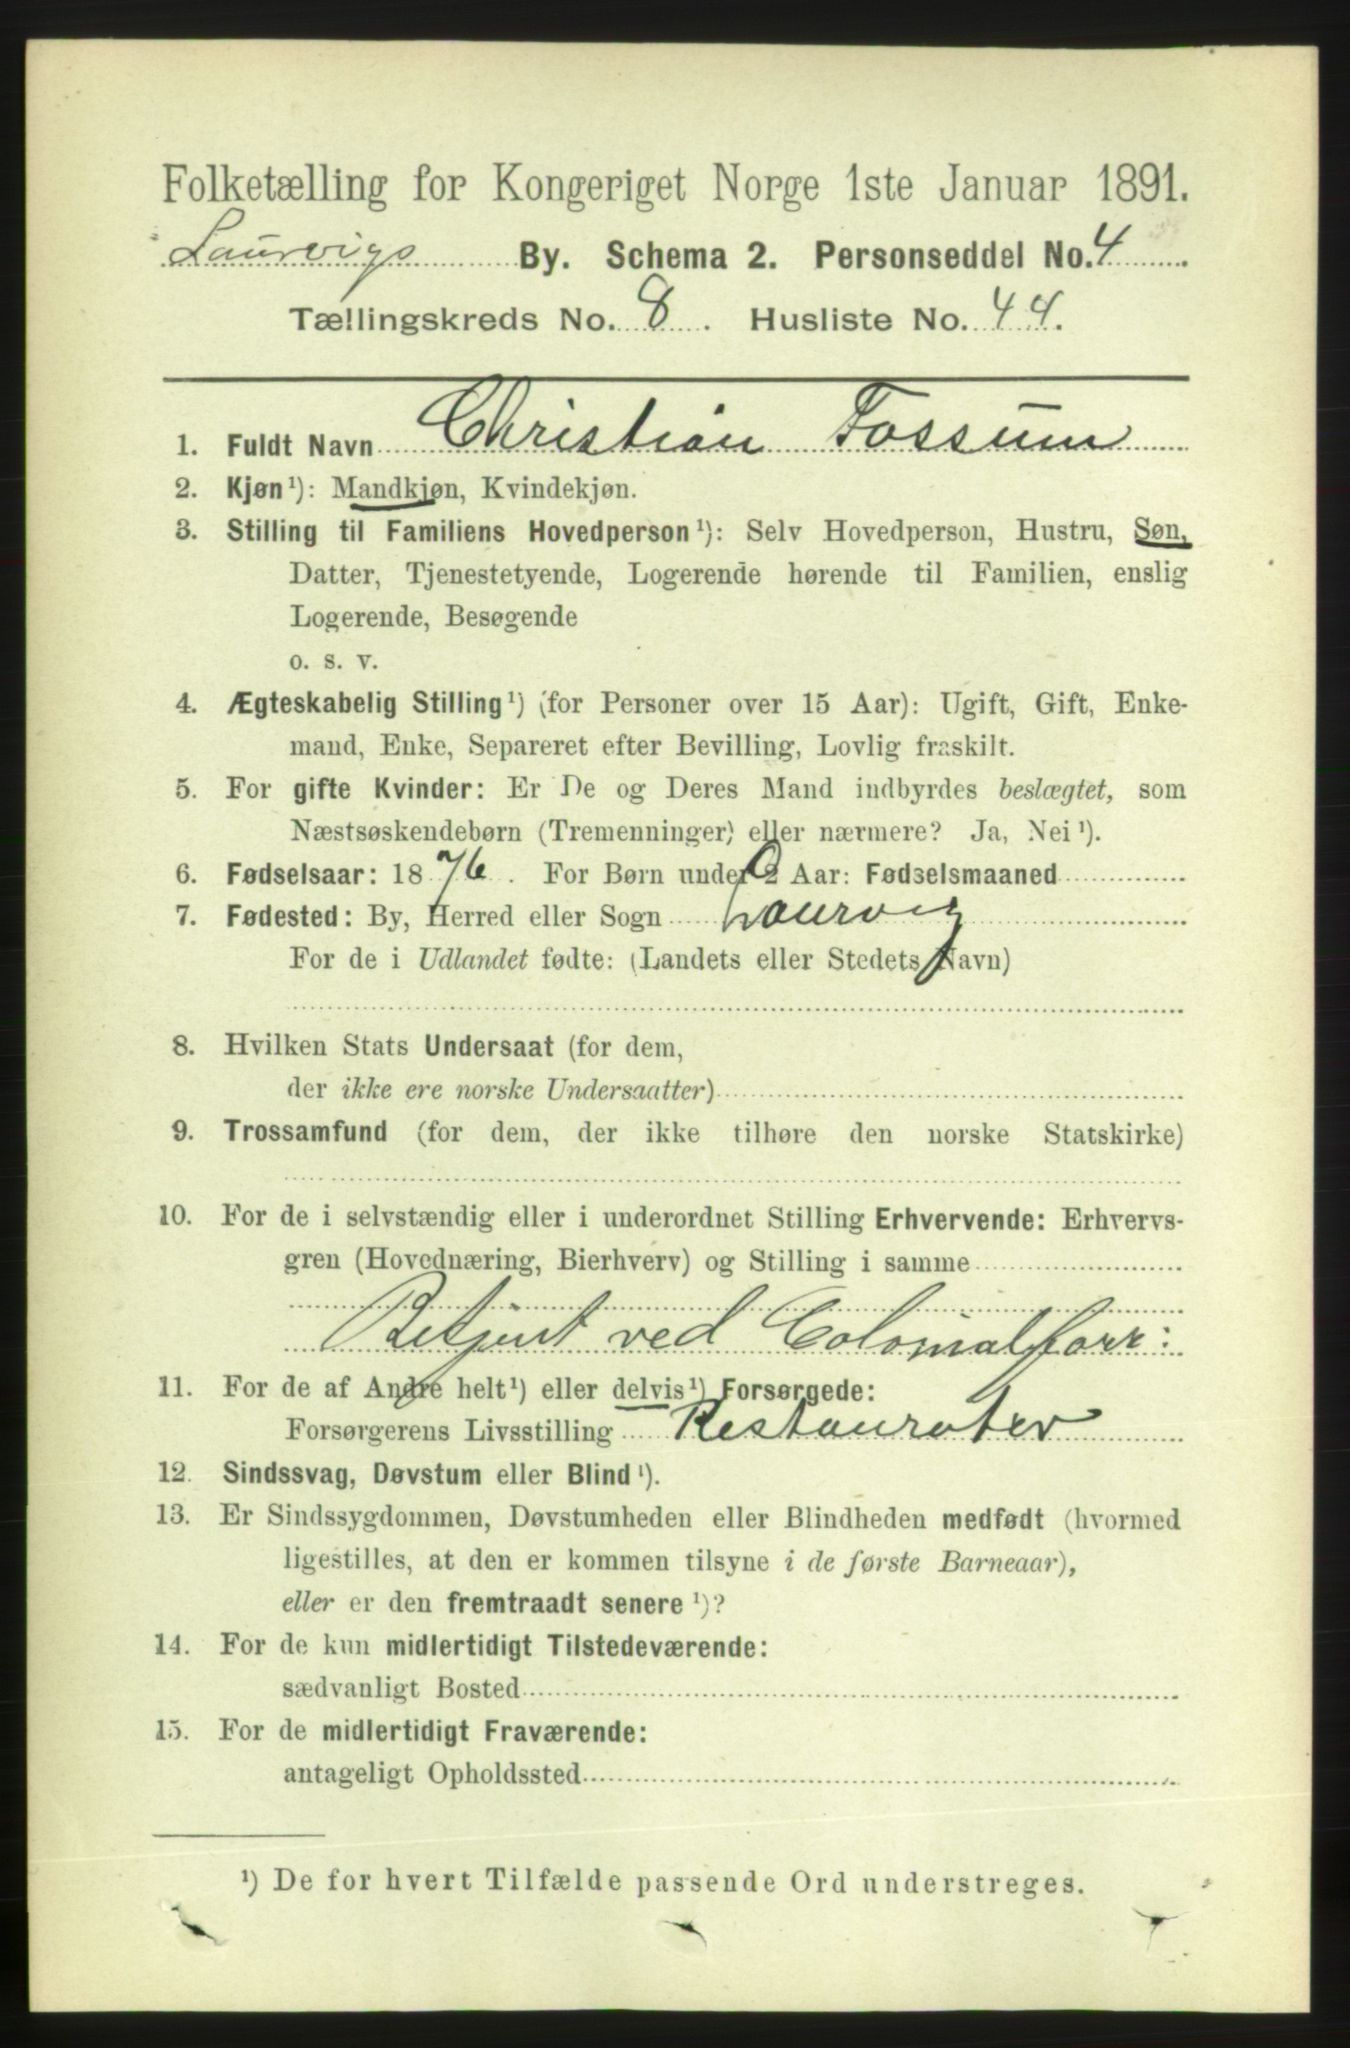 Folketælling for Kongeriget Norge 1ste Januar 1891.
Laurvigs By. Schema 2. Personseddel No. 4
Tællingskreds No. 8. Husliste No. 44.
1. Fuldt Navn Christian Fossum
2. Kjøn¹): Mandkjøn, Kvindekjøn.
3. Stilling til Familiens Hovedperson¹): Selv Hovedperson, Hustru, Søn,
Datter, Tjenestetyende, Logerende hørende til Familien, enslig
Logerende, Besøgende
o. s. v.
4. Ægteskabelig Stilling¹) (for Personer over 15 Aar): Ugift, Gift, Enke-
mand, Enke, Separeret efter Bevilling, Lovlig fraskilt.
5. For gifte Kvinder: Er De og Deres Mand indbyrdes beslægtet, som
Næstsøskendebørn (Tremenninger) eller nærmere? Ja, Nei¹).
6. Fødselsaar: 1876. For Børn under 2 Aar: Fødselsmaaned
7. Fødested: By, Herred eller Sogn Laurvig
For de i Udlandet fødte: (Landets eller Stedets Navn)
8. Hvilken Stats Undersaat (for dem,
der ikke ere norske Undersaatter)
9. Trossamfund (for dem, der ikke tilhøre den norske Statskirke)
10. For de i selvstændig eller i underordnet Stilling Erhvervende: Erhvervs-
gren (Hovednæring, Bierhverv) og Stilling i samme
Betjent ved Colonialforr:
11. For de af Andre helt¹) eller delvis¹) Forsørgede:
Forsørgerens Livsstilling Restauratør
12. Sindssvag, Døvstum eller Blind¹).
13. Er Sindssygdommen, Døvstumheden eller Blindheden medfødt (hvormed
ligestilles, at den er kommen tilsyne i de første Barneaar),
eller er den fremtraadt senere¹)?
14. For de kun midlertidigt Tilstedeværende:
sædvanligt Bosted
15. For de midlertidigt Fraværende:
antageligt Opholdssted
¹) De for hvert Tilfælde passende Ord understreges.